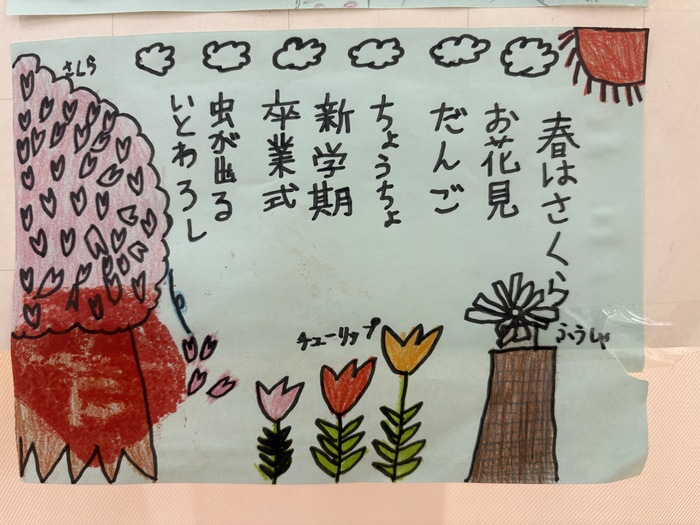 春はさくら
お花見
だんご
ちょうちょ
新学期
卒業式
虫が出る
いとわろし
さくら
チューリップ
ふうしゃ